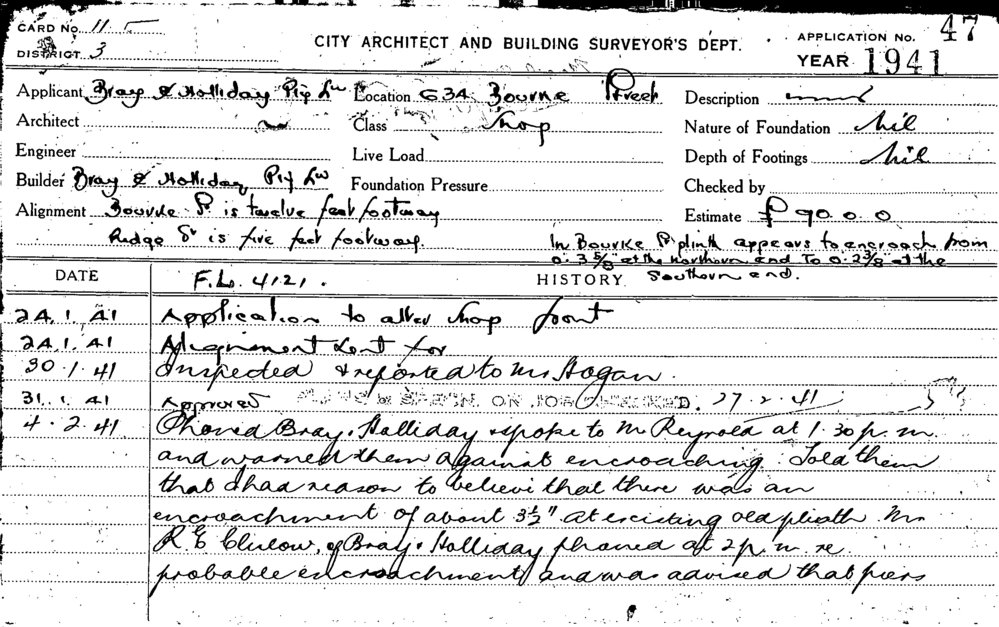 CARD No. 115
DISTRICT 3
CITY ARCHITECT AND BUILDING SURVEYOR'S DEPT.
APPLICATION No. 47
YEAR 1941
Applicant Bray & Holliday Pty Ld
Location 634 Bourke Street
Description
Architect
Class Shop
Nature of Foundation Nil
Engineer
Live Load
Depth of Footings Nil
Builder Bray & Holliday Pty Ld
Foundation Pressure
Checked by
Alignment Bourke St is twelve feet footway
Estimate £90.0.0
Ridge St is five feet footway.
In Bourke St plinth appears to encroach from
0.3 5/8" at the northern end To 0.2 3/8" at the
Southern end.
DATE
F.L. 4121.
HISTORY
24.1.41 Application to alter shop front
24.1.41 Alignment sent for
30.1.41 Inspected & reported to Mr Hogan.
31.1.41 Approved ON JOB 27.2.41
4.2.41 Phoned Bray & Holliday & spoke to Mr Reynold at 1.30 p.m.
and warned them against encroaching. Told them
that I had reason to believe that there was an
encroachment of about 3½" at existing old plinth Mr
R. E. Clulow, of Bray & Holliday phoned at 2 p.m. re
probable encroachment and was advised that piers